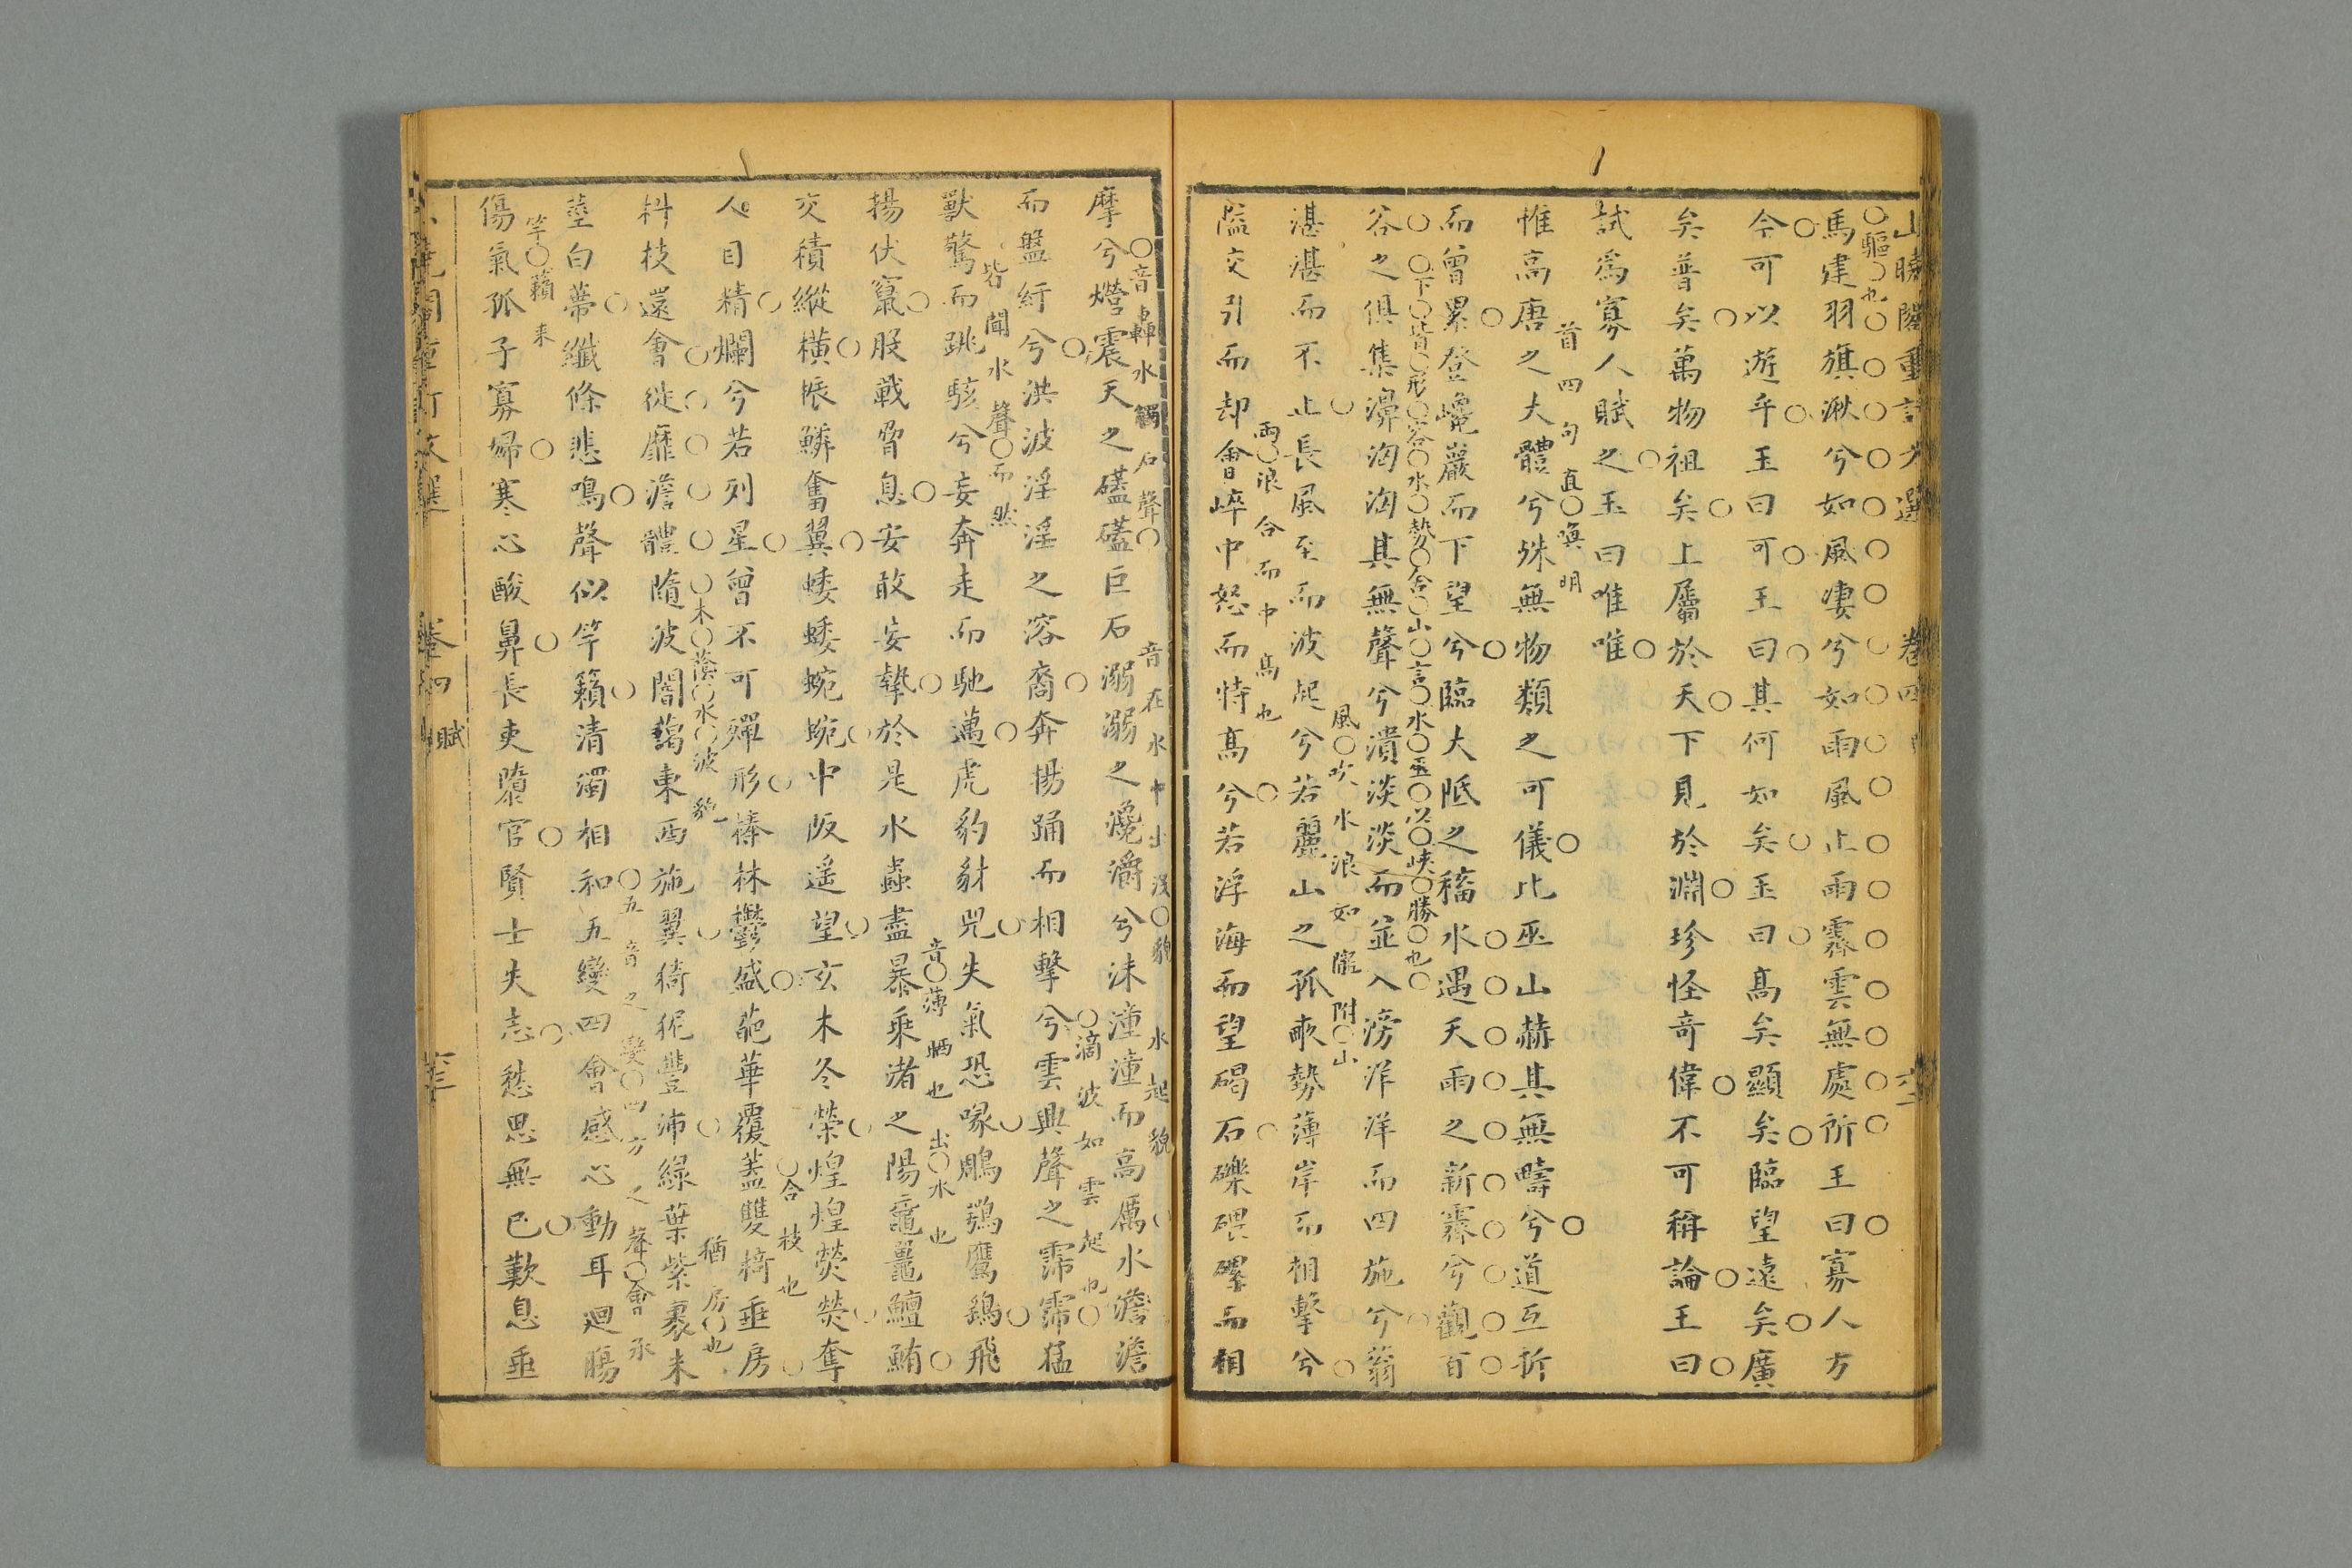 山曉閣重訂文選 卷四
馬建羽旗湫兮如風凄兮如雨風止雨霽雲無處所王曰寡人方
驅也
今可以遊乎玉曰可王曰其何如矣玉曰高矣顯矣臨望遠矣廣
矣普矣萬物祖矣上屬於天下見於淵珍怪奇偉不可稱論王曰
試爲寡人賦之玉曰唯唯
惟高唐之大體兮殊無物類之可儀比巫山赫其無疇兮道互折
首四句直喚明
而曾累登巉巖而下望兮臨大阺之稸水遇天雨之新霽兮觀百
谷之俱集濞洶洶其無聲兮潰淡淡而並入滂洋洋而四施兮蓊
下皆形容水勢含山言水巫以峽勝也
湛湛而不止長風至而波起兮若麗山之孤畝勢薄岸而相擊兮
風吹水浪如隴附山
隘交引而却會崒中怒而特高兮若浮海而望碣石礫磥磥而相
兩浪合而中高也
摩兮巆震天之礚礚巨石溺溺之瀺灂兮沫潼潼而高厲水澹澹
音轟水觸石聲 音在水中出沒貌 水起貌
而盤紆兮洪波淫淫之溶裔奔揚踊而相擊兮雲興聲之霈霈猛
滴波如雲起也
獸驚而跳駭兮妄奔走而馳邁虎豹豺兕失氣恐喙鵰鶚鷹鷂飛
皆聞水聲而然
揚伏竄股戰脅息安敢妄摯於是水蟲盡暴乘渚之陽黿鼉鱣鮪
音薄晒也 出水也
交積縱橫振鱗奮翼蜲蜲蜿蜿中阪遥望玄木冬榮煌煌熒熒奪
人目精爛兮若列星曾不可殫形榛林鬱盛葩華覆蓋雙椅垂房
合枝也
枓枝還會徙靡澹體隨波闇藹東西施翼猗狔豐沛綠葉紫裹朱
木蔭水波貌 猶房也
莖白蔕纖條悲鳴聲似竽籟清濁相和五變四會感心動耳迴腸
五音之變四方之聲會永
傷氣孤子寡婦寒心酸鼻長吏隳官賢士失志愁思無已歎息垂
竽籟來
卷四 賦